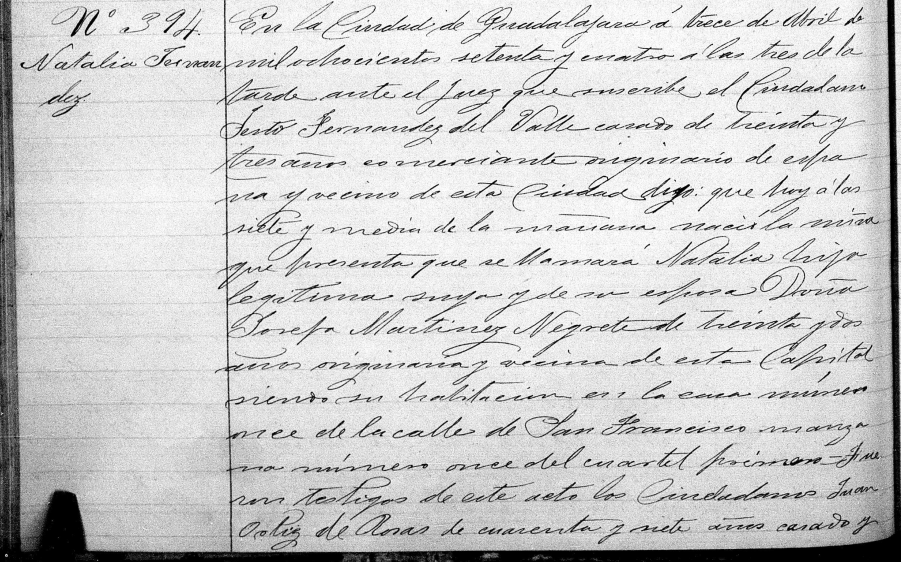 N° 394.
Natalia Fernan
dez.
En la Ciudad de Guadalajara á trece de Abril de
mil ochocientos setenta y cuatro á las tres de la
tarde ante el Juez que suscribe el Ciudadano
Justo Fernandez del Valle casado de treinta y
tres años comerciante originario de espa
ña y vecino de esta Ciudad dijo: que hoy á las
siete y media de la mañana nació la niña
que presenta que se llamará Natalia hija
legitima suya y de su esposa Doña
Josefa Martinez Negrete de treinta y dos
años originaria y vecina de esta Capital
siendo su habitacion en la casa número
once de la calle de San Francisco manza
na número once del cuartel primero - Fue
ron testigos de este acto los Ciudadanos Juan
Ortiz de Rosas de cuarenta y siete años casado y